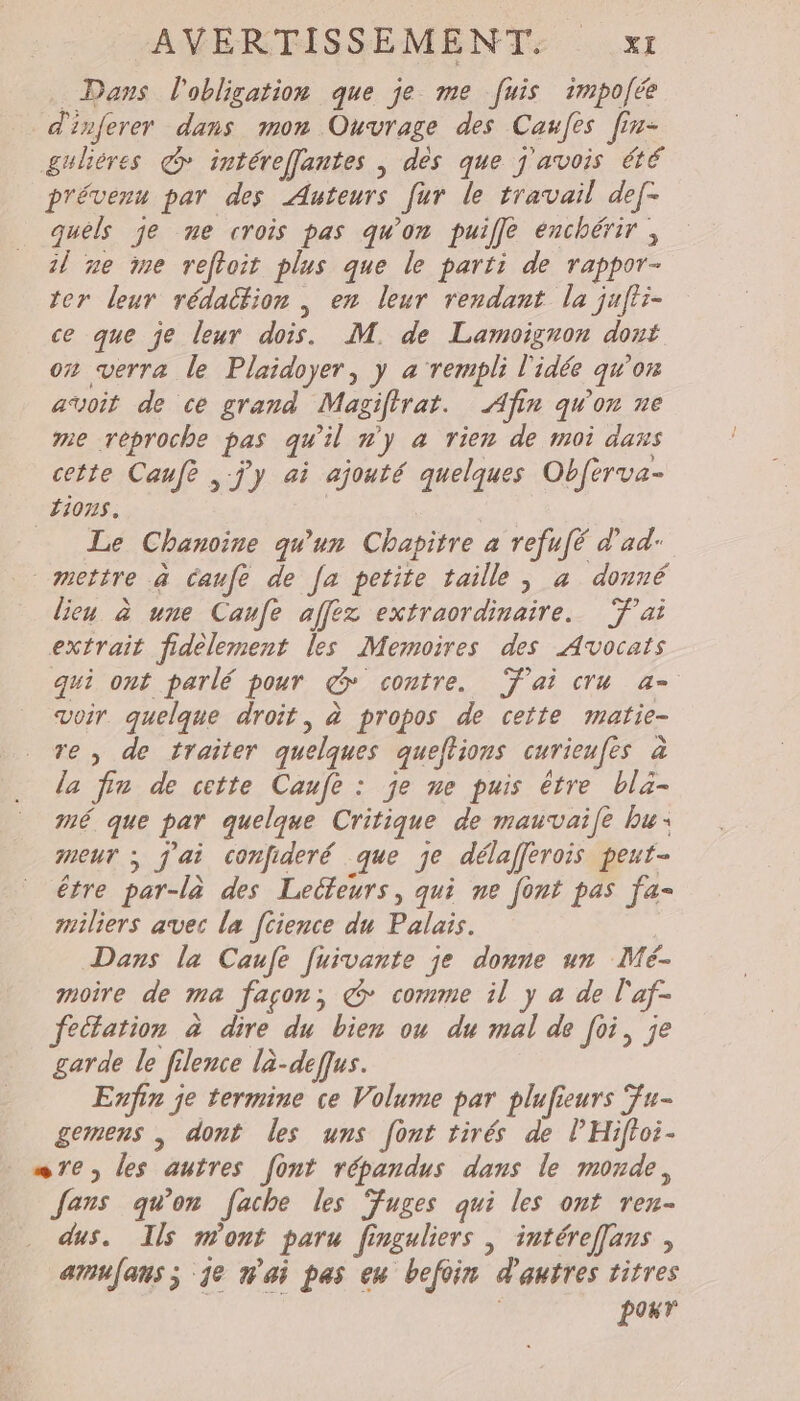 AVERTISSEMENT. XI
Dans l'obligation que je me ſuis impoſée
d'inſerer dans mon Ouvrage des Cauſes ſin-
guliéres & intéreſſantes, dès que j'avois été
prévenu par des Auteurs ſur le travail deſ-
quels je ne crois pas qu'on puiſſe enchérir,
il ne me reſtoit plus que le parti de rappor-
ter leur rédaction, en leur rendant la juſti-
ce que je leur dois. M. de Lamoignon dont
on verra le Plaidoyer, y a rempli l'idée qu'on
avoit de ce grand Magiſtrat. Afin qu'on ne
me reproche pas qu'il n'y a rien de moi dans
cette Cauſe, j'y ai ajouté quelques Obſerva-
tions.
Le Chanoine qu'un Chapitre a refuſé d'ad-
mettre à cauſe de ſa petite taille, a donné
lieu à une Cauſe aſſez extraordinaire. J'ai
extrait fidèlement les Memoires des Avocats
qui ont parlé pour & contre. J'ai cru a-
voir quelque droit, à propos de cette matie-
re, de traiter quelques queſtions curieuſes à
la fin de cette Cauſe : je ne puis être blâ-
mé que par quelque Critique de mauvaiſe hu-
meur ; j'ai conſideré que je délaſſerois peut-
être par-là des Lecteurs, qui ne ſont pas fa-
miliers avec la ſcience du Palais.
Dans la Cauſe ſuivante je donne un Mé-
moire de ma façon; & comme il y a de l'af-
fectation à dire du bien ou du mal de ſoi, je
garde le ſilence là-deſſus.
Enfin je termine ce Volume par pluſieurs Ju-
gemens, dont les uns ſont tirés de l'Hiſtoi-
re, les autres ſont répandus dans le monde,
ſans qu'on ſache les Juges qui les ont ren-
dus. Ils m'ont paru ſinguliers, intéreſſans,
amuſans; je n'ai pas eu beſoin d'autres titres
pour